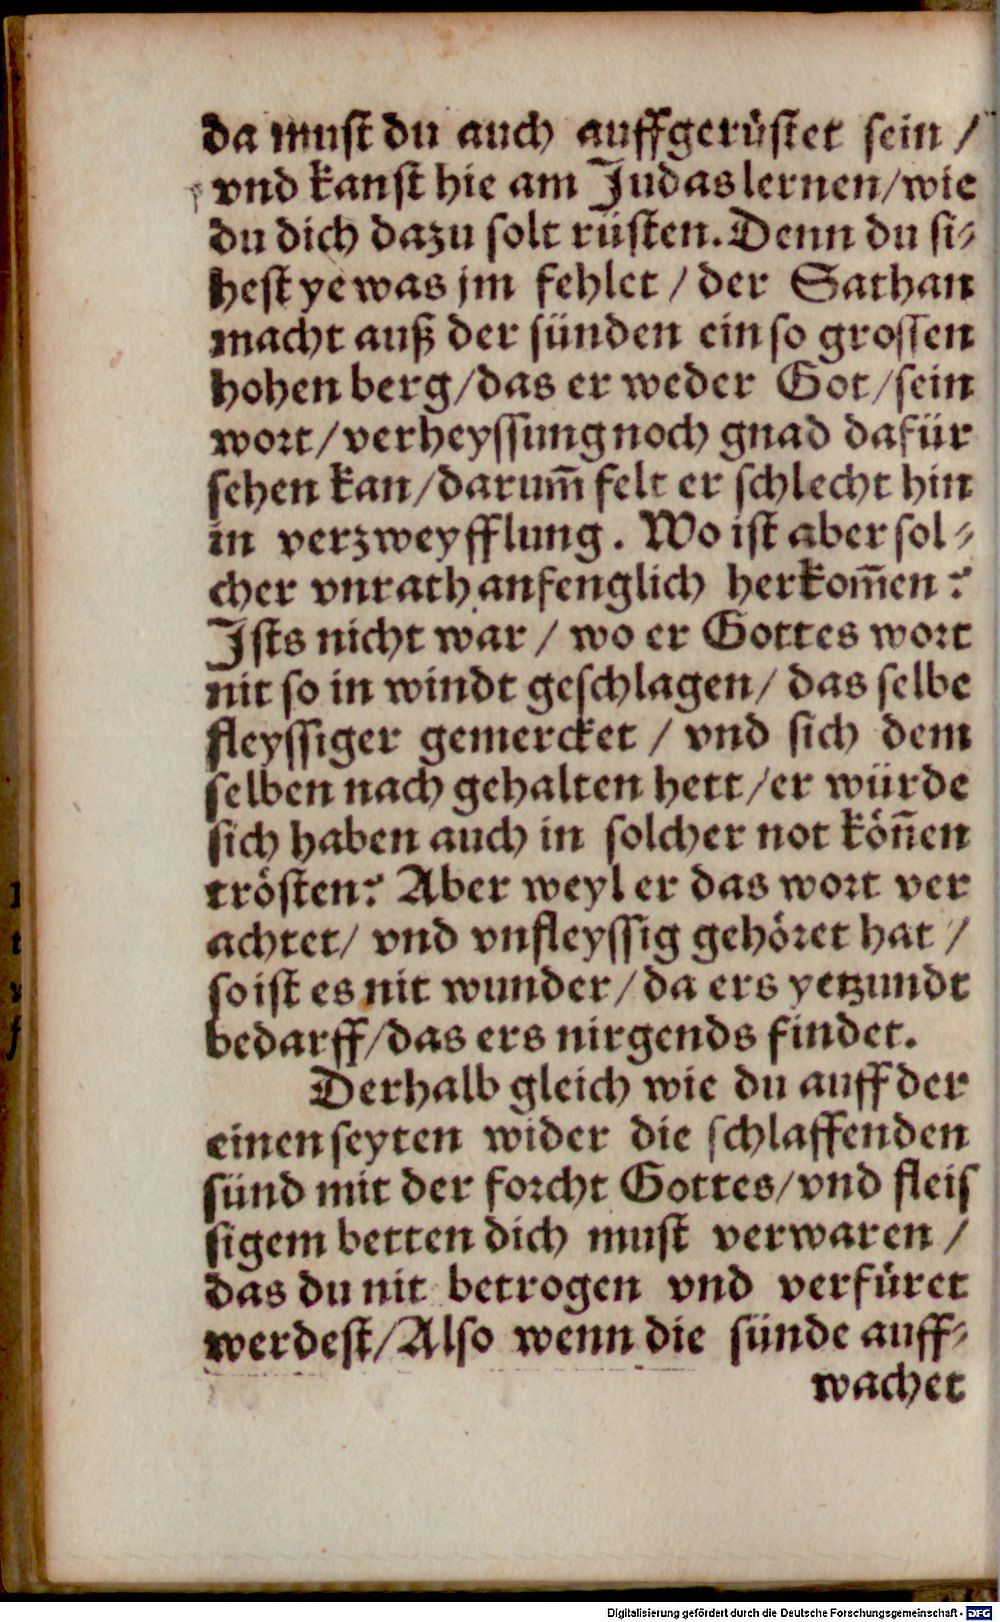 da must du auch auffgerüstet sein /
vnd kanst hie am Judas lernen/wie
du dich dazu solt rüsten. Denn du si⸗
hest ye was jm fehlet / der Sathan
macht auß der sünden ein so grossen
hohen berg/das er weder Got/sein
wort/verheyssung noch gnad dafür
sehen kan/darum̃ felt er schlecht hin
in verzweyfflung. Wo ist aber sol⸗
cher vnrath anfenglich herkom̃en?
Ists nicht war / wo er Gottes wort
nit so in windt geschlagen/ das selbe
fleyssiger gemercket / vnd sich dem
selben nach gehalten hett/er würde
sich haben auch in solcher not köñen
trösten? Aber weyl er das wort ver
achtet/ vnd vnfleyssig gehöret hat /
so ist es nit wunder/da ers yetzundt
bedarff/das ers nirgends findet.
Derhalb gleich wie du auff der
einen seyten wider die schlaffenden
sünd mit der forcht Gottes/vnd fleis
sigem betten dich must verwaren /
das du nit betrogen vnd verfüret
werdest/Also wenn die sünde auff⸗
wachet
Digitalisierung gefördert durch die Deutsche Forschungsgemeinschaft - DFG